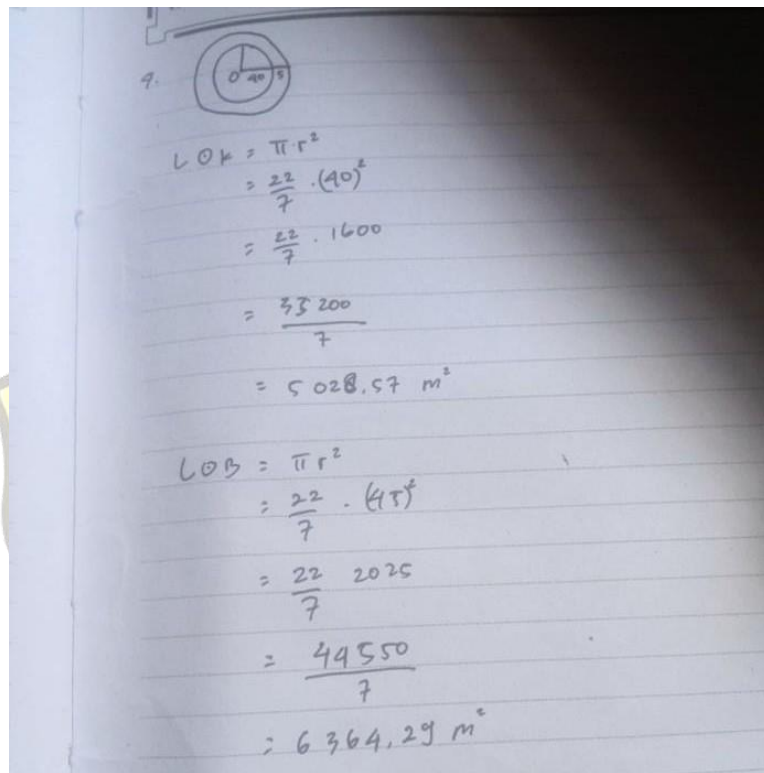 4.
O 40 5
L⊙K = π r²
= 22/7 . (40)²
= 22/7 . 1600
= 35 200/7
= 5 028,57 m²
L⊙B = π r²
= 22/7 . (45)²
= 22/7 2025
= 44550/7
= 6 364,29 m²